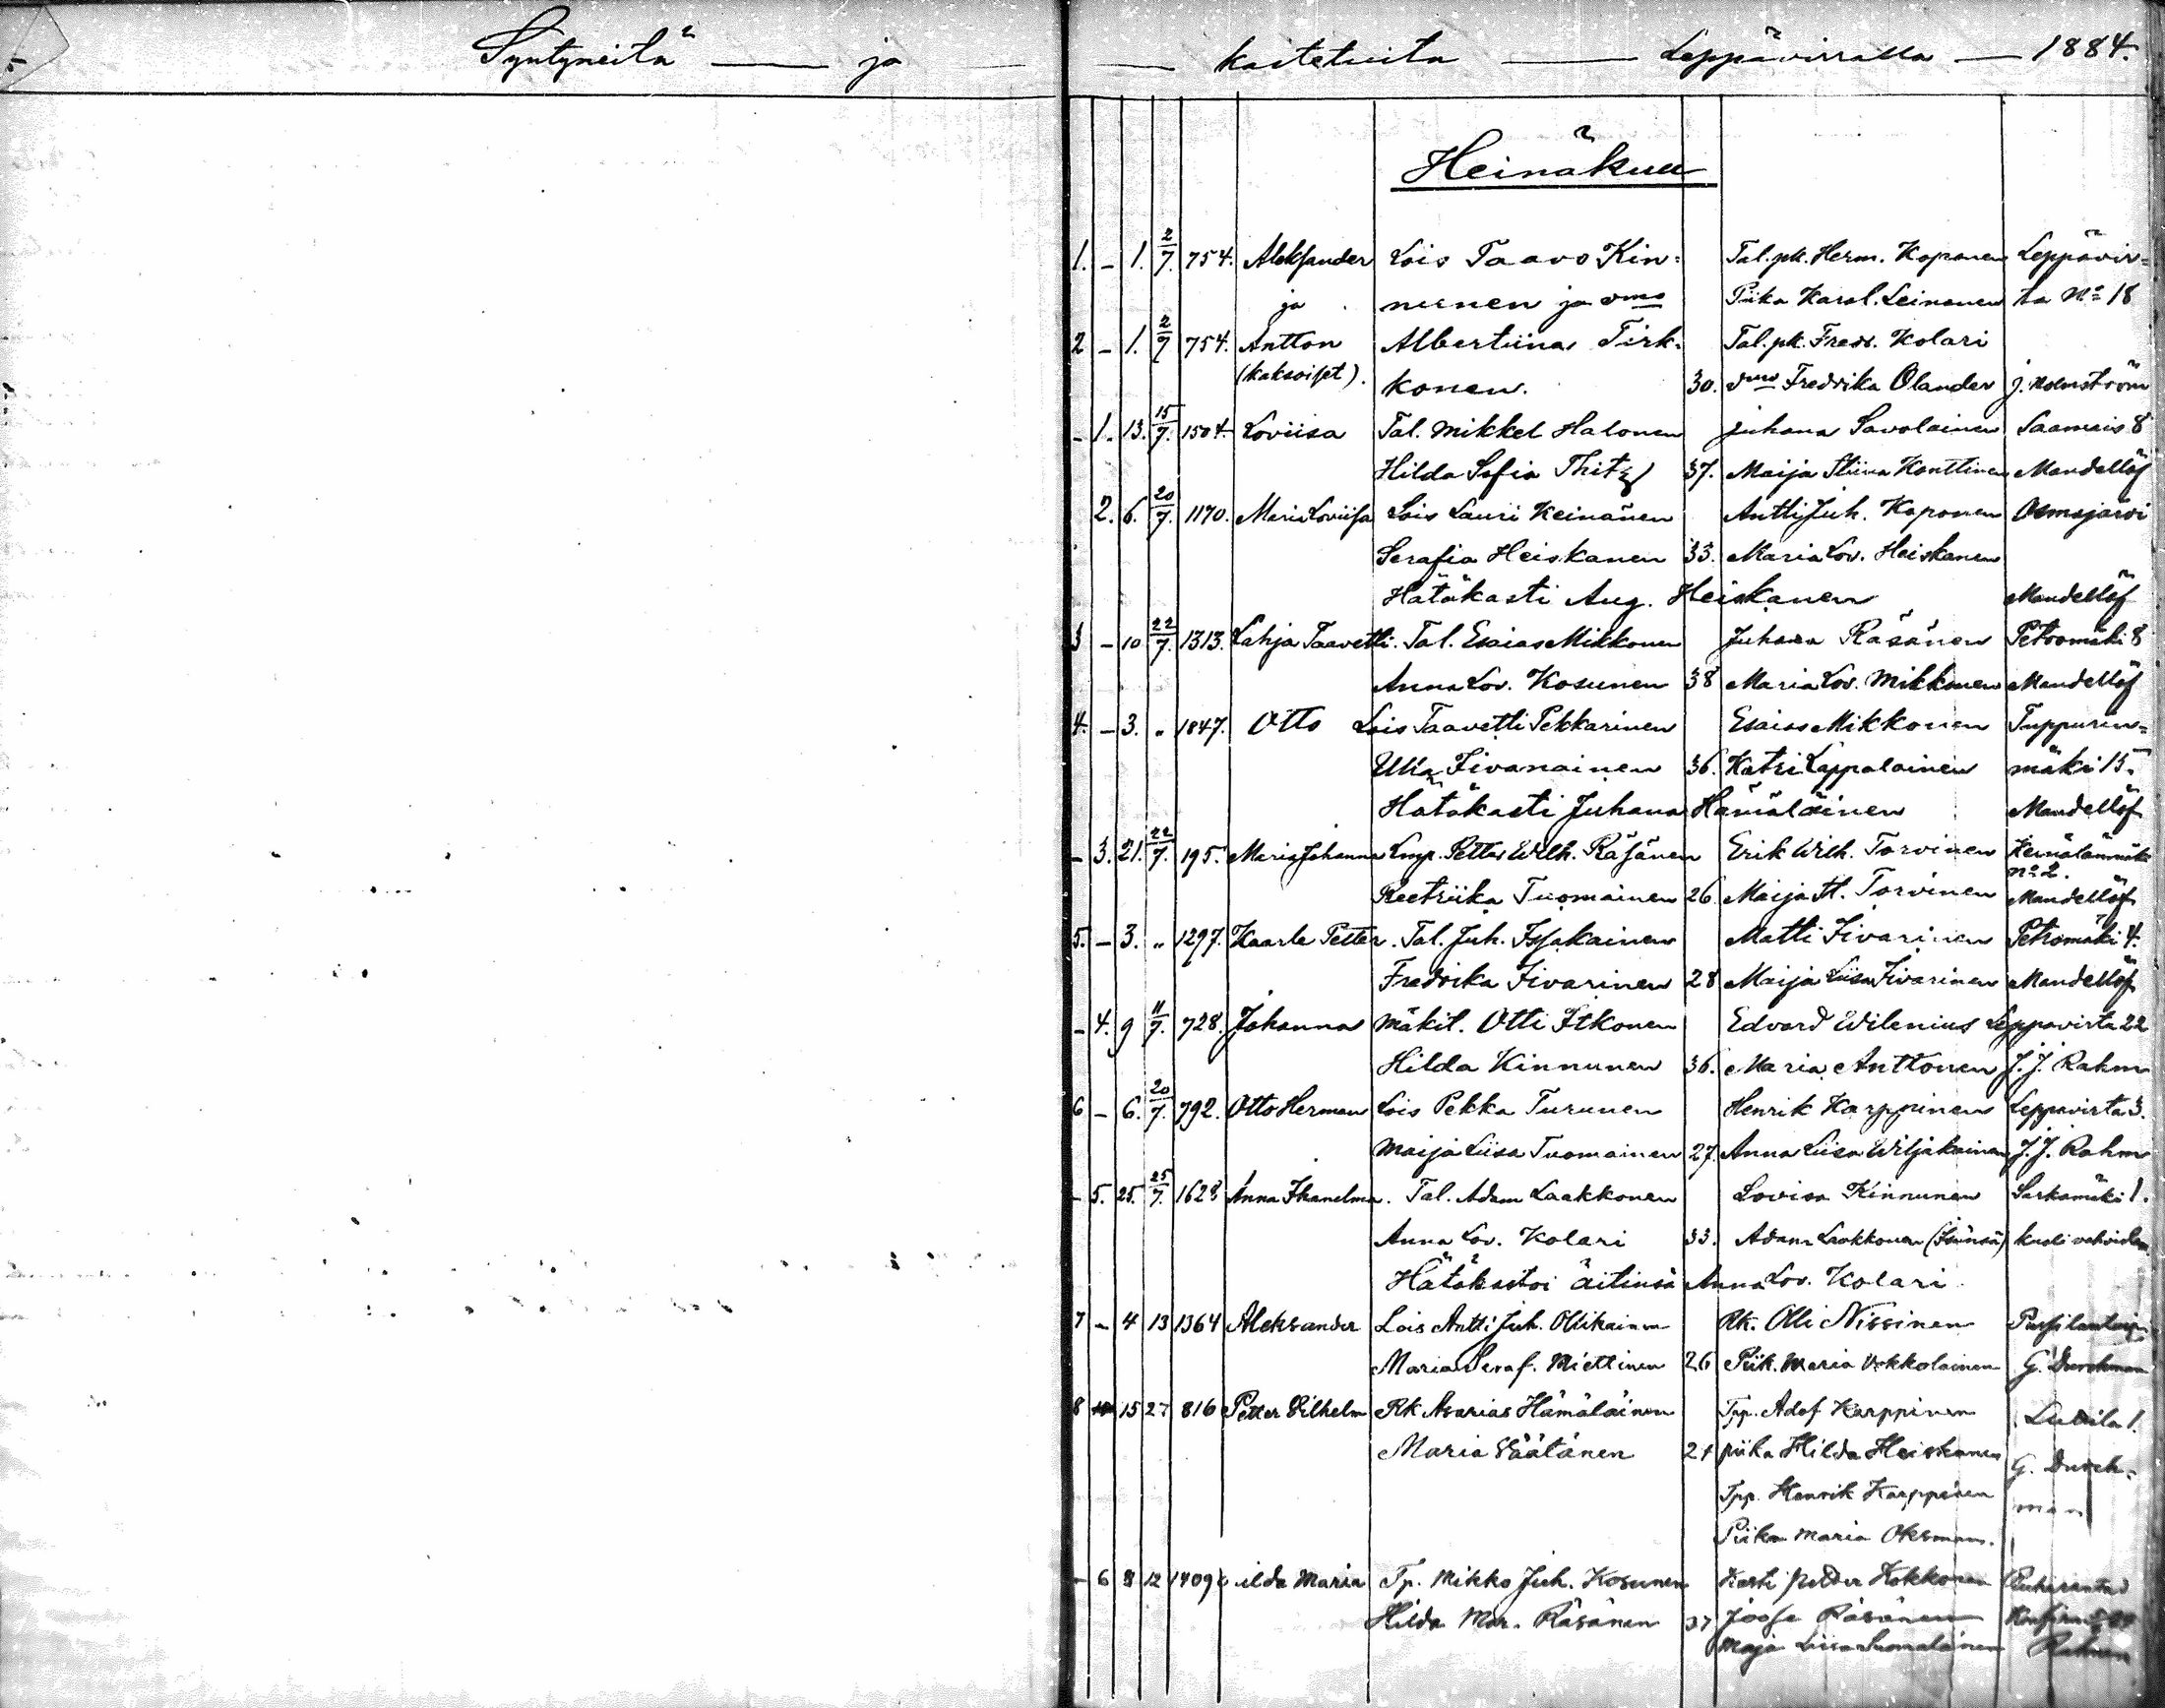 Syntyneitä — ja — kastetuita — Leppävirralla — 1884.
Heinäkuu
1. — 1. 2/7. 754. Aleksander Lois Taavo Kin= Tal. pk. Herm. Koponen Leppävir=
ja nunen ja vmo Piika Karol. Leinonen ta No 18
2 — 1. 2/7 754. Antton Albertiina Tirk= Tal. pk. Fredr. Kolari
(kaksoiset). konen. 30. vmo Fredrika Olander J. Holmström
— 1. 13. 15/7. 1504. Loviisa Tal. Mikkel Halonen Juhana Savolainen Saamais 8
Hilda Sofia Thitz 37. Maija Stiina Konttinen Mandellöf
2. 6. 20/7. 1170. Maria Loviisa Lois Lauri Keinänen Antti Juh. Koponen Osmajärvi
Serafia Heiskanen 33. Maria Lov. Heiskanen
Hätäkasti Aug. Heiskanen Mandellöf
3 — 10 22/7. 1313. Lahja Taavetti. Tal. Esaias Mikkonen Juhana Räsänen Petromäki 8
Anna Lov. Kosunen 38 Maria Lov. Mikkonen Mandellöf
4. — 3. „ 1847. Otto Lois Taavetti Pekkarinen Esaias Mikkonen Tuppurin=
Ulla Iivanainen 36. Katri Lappalainen mäki 15.
Hätäkasti Juhana Hämäläinen Mandellöf
— 3. 21. 22/7. 195. Maria Johanna Lmp. Petter Wilh. Räsänen Erik Wilh. Torvinen
No 2.
Reetriika Tuomainen 26. Maija St. Torvinen Mandellöf
5. — 3. „ 1297. Kaarle Petter. Tal. Juh. Issakainen Matti Iivarinen Petromäki 4.
Fredrika Iivarinen 28 Maija Liisa Iivarinen Mandellöf
— 4. 9 11/7. 728. Johanna Mäkit. Otti Itkonen Edvard Wilenius Leppävirta 22
Hilda Kinnunen 36. Maria Anttonen J. J. Rahm
6 — 6. 20/7. 792. Otto Herman Lois Pekka Turunen Henrik Karppinen Leppävirta 3.
Maija Liisa Tuomainen 27. Anna Liisa Wiljakainen J. J. Rahm
— 5. 25. 25/7. 1628 Anna Ihanelma. Tal. Adam Laakkonen Lovisa Kinnunen Sarkamäki 1.
Anna Lov. Kolari 33. Adam Laakkonen (Isänsä)
Hätäkastoi äitinsä Anna Lov. Kolari
7 — 4 13 1364 Aleksander Lois Antti Juh. Ollikainen Rk. Olli Nissinen
Maria Seraf. Miettinen 26 Piik. Maria Vokkolainen G. Durchman
8 15 27 816 Petter Vilhelm Rk Asarias Hämäläinen Tpp. Adof Karppinen
Maria Väätänen 21 piika Hilda Heiskanen G. Durch=
Tpp. Henrik Karppinen man
Piika Maria Oksman.
— 6 8 12 1409 ilda Maria Tp. Mikko Juh. Kosunen Kokkonen
Hilda Mar. Räsänen 37 Joose Räsänen
Maja Liisa Suomalainen Rahm